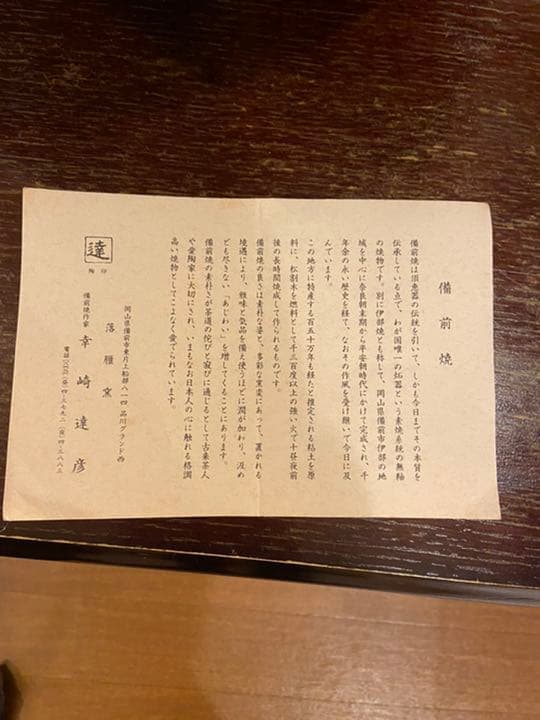 備前燒
備前焼は須恵器の伝統を引いて、しかも今日までその本質を
伝承している点で、わが国唯一の炻器という素焼系統の無釉
の焼物です。別に伊部焼とも称して、岡山県備前市伊部の地
域を中心に奈良朝末期から平安朝時代にかけて完成され、千
年余の永い歴史を経て、なおその作風を受け継いで今日に及
んでいます。
この地方に特産する百五十万年も経たと推定される粘土を原
料に、松割木を燃料として千三百度以上の強い火で十昼夜前
後の長時間焼成して作られるものです。
備前焼の良さは素朴な姿と、多彩な窯変にあって、置かれる
境遇により、雅味と気品を備え使うほどに潤が加わり、汲め
ども尽きない「あじわい」を増してくることにあります。
備前焼の素朴さが茶道の侘びと寂びに通じるとして古来茶人
や愛陶家に大切にされ、いまもなお日本人の心に触れる格調
高い焼物としてこよなく愛でられています。
岡山県備前市東片上船部八一四 品川グランド西
落雁窯
備前焼作家 幸崎達彦
達
陶印